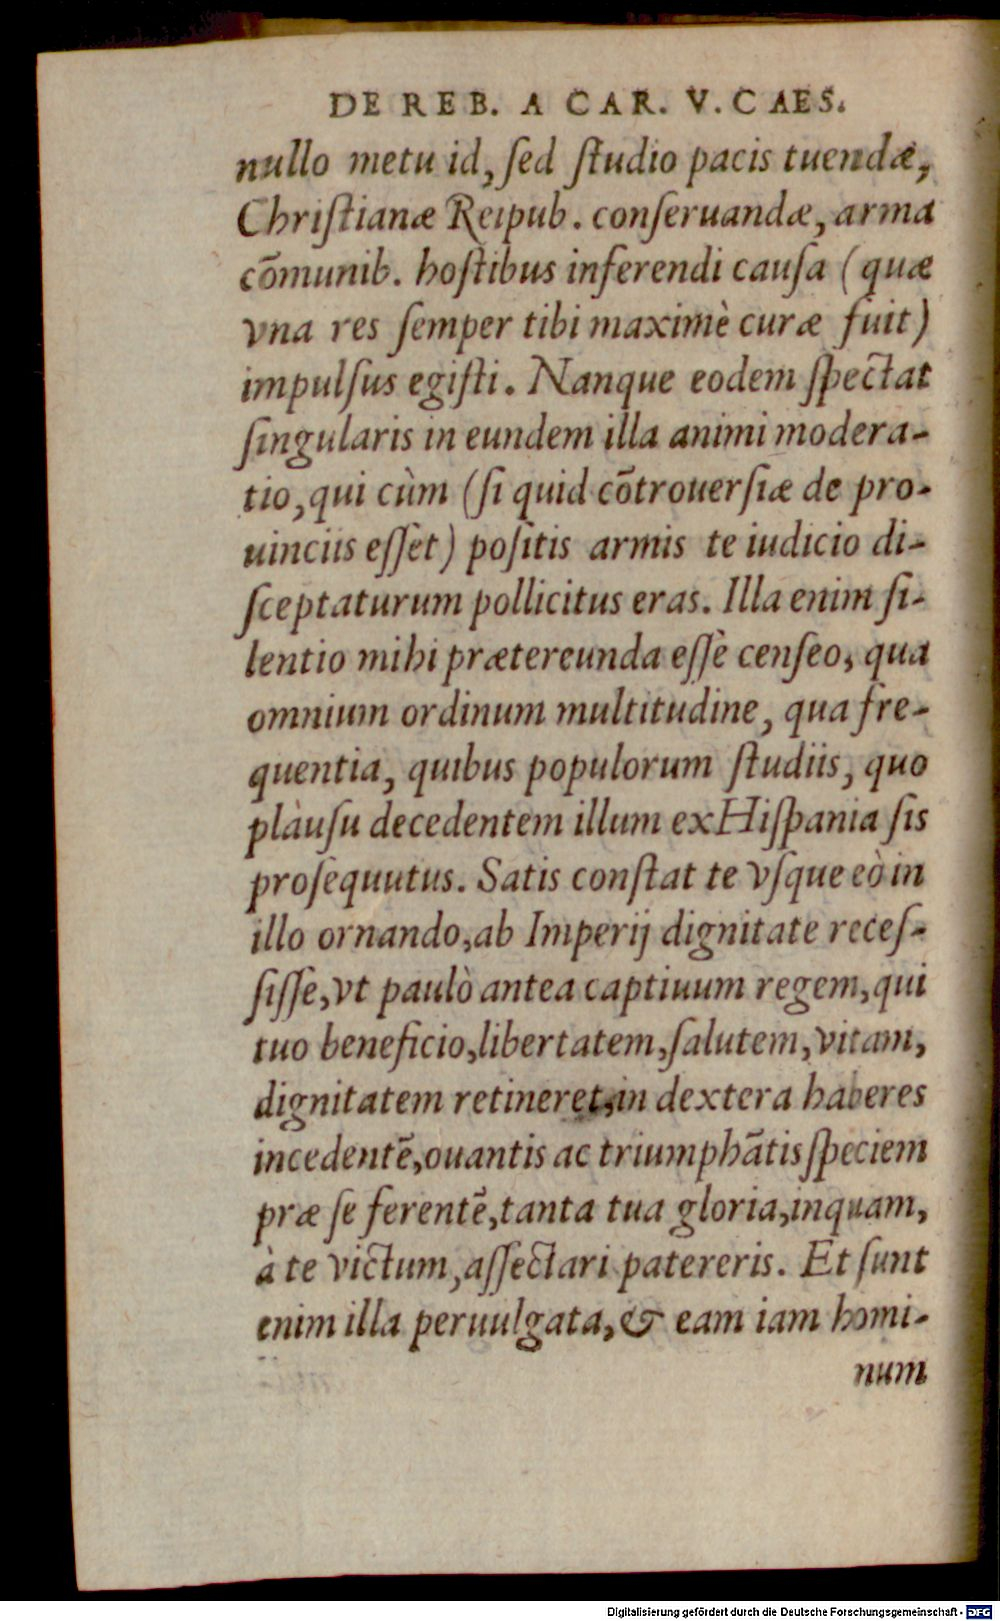 DE REB. A CAR. V. CAES.
nullo metu id, ſed ſtudio pacis tuendæ,
Chriſtianæ Reipub. conſeruandæ, arma
cōmunib. hoſtibus inferendi cauſa (quæ
vna res ſemper tibi maximè curæ fuit)
impulſus egiſti. Nanque eodem ſpectat
ſingularis in eundem illa animi modera-
tio, qui cùm (ſi quid cōtrouerſiæ de pro-
uinciis eſſet) poſitis armis te iudicio di-
ſceptaturum pollicitus eras. Illa enim ſi-
lentio mihi prætereunda eſſè cenſeo, qua
omnium ordinum multitudine, qua fre-
quentia, quibus populorum ſtudiis, quo
plàuſu decedentem illum ex Hiſpania ſis
proſequutus. Satis conſtat te vſque eò in
illo ornando, ab Imperij dignitate receſ-
ſiſſe, vt paulò antea captiuum regem, qui
tuo beneficio, libertatem, ſalutem, vitam,
dignitatem retineret, in dextera haberes
incedentē, ouantis ac triumphātis ſpeciem
præ ſe ferentē, tanta tua gloria, inquam,
à te victum, aſſectari patereris. Et ſunt
enim illa peruulgata, & eam iam homi-
num
Digitalisierung gefördert durch die Deutsche Forschungsgemeinschaft - DFG